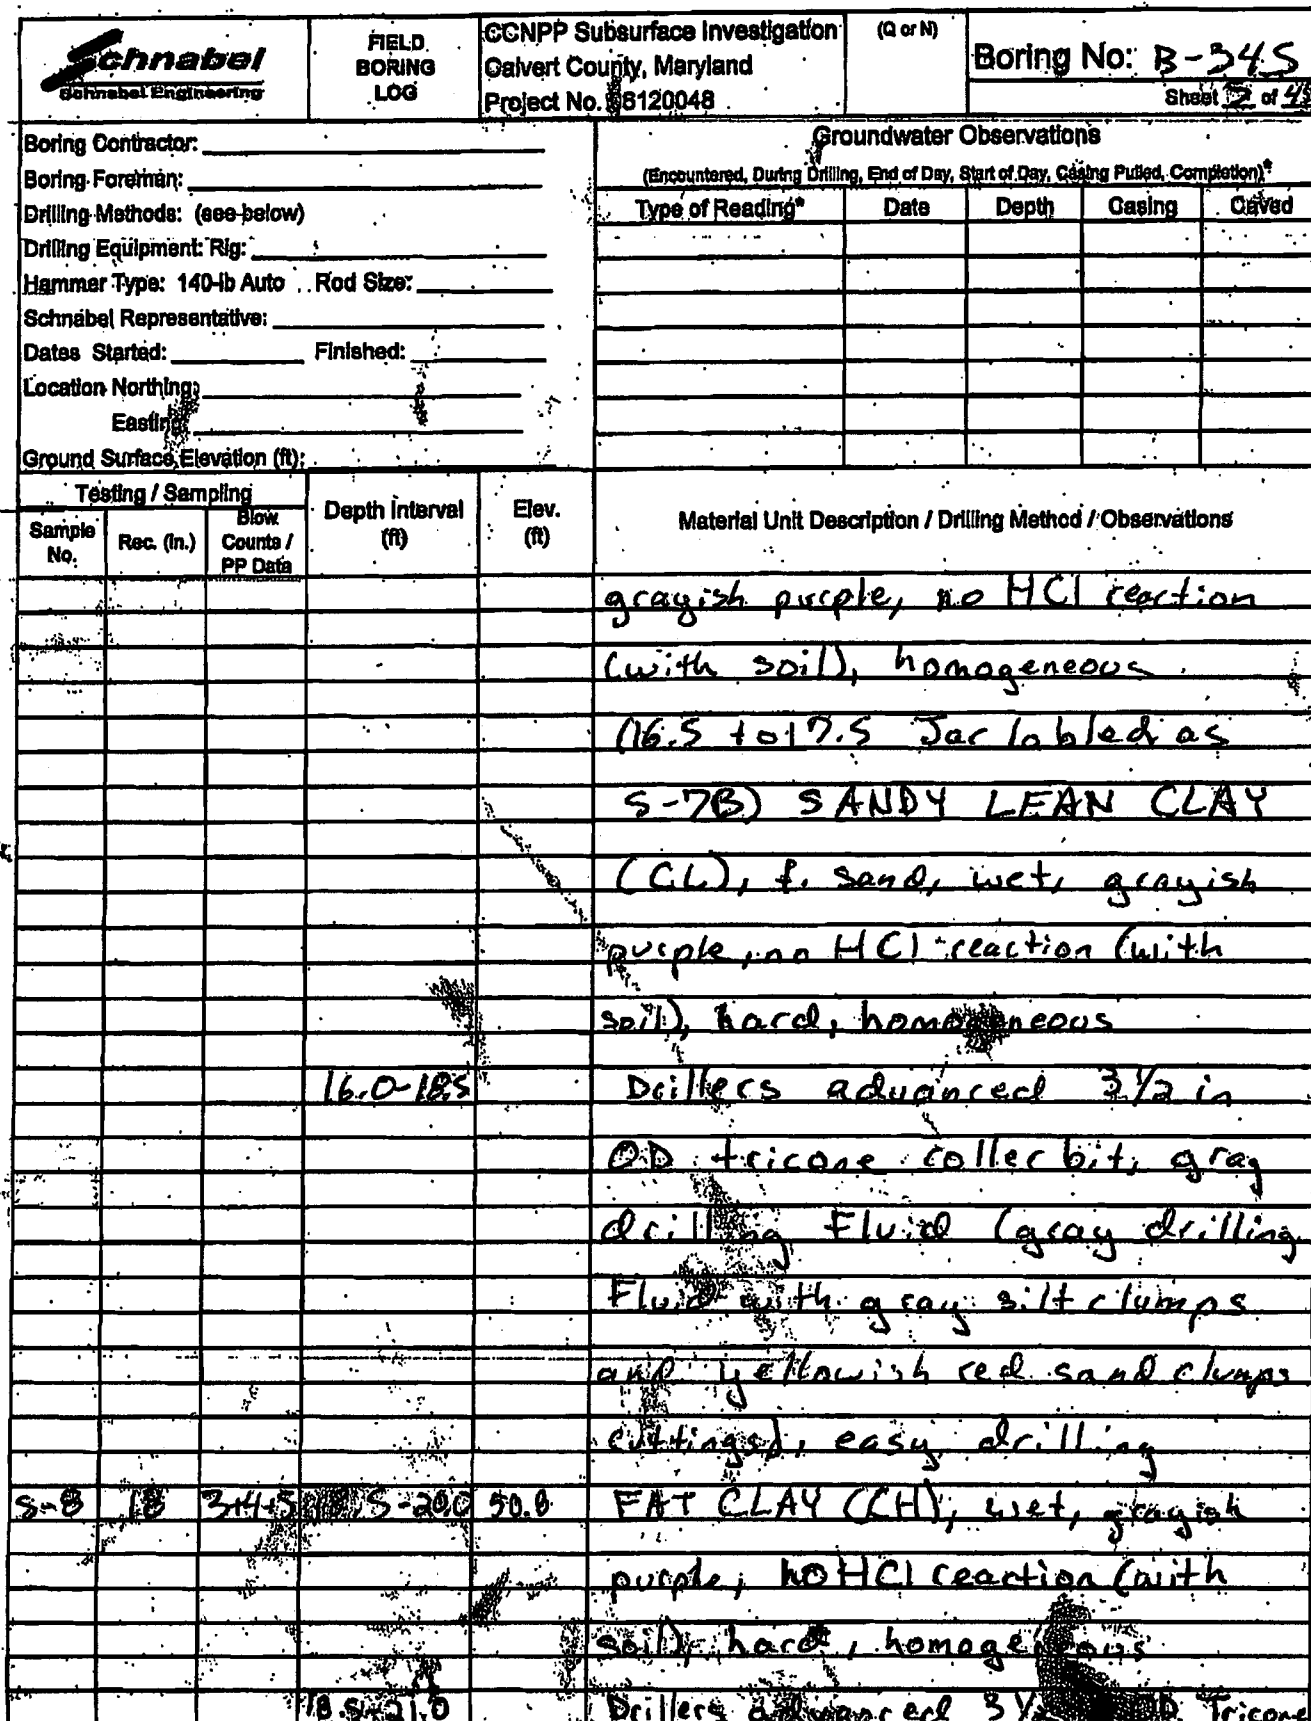 Schnabel
Schnabel Engineering
FIELD
BORING
LOG
CCNPP Subsurface Investigation
Calvert County, Maryland
Project No. 06120048
(Q or N)
Boring No: B-345
Sheet 2 of
Boring Contractor:
Boring Foreman:
Drilling Methods: (see below)
Drilling Equipment: Rig:
Hammer Type: 140-lb Auto Rod Size:
Schnabel Representative:
Dates Started: Finished:
Location Northing:
Easting:
Ground Surface Elevation (ft):
Groundwater Observations
(Encountered, During Drilling, End of Day, Start of Day, Casing Pulled, Completion)*
Type of Reading* Date Depth Casing Caved
Testing / Sampling
Sample No. Rec. (in.) Blow Counts / PP Data Depth Interval (ft) Elev. (ft) Material Unit Description / Drilling Method / Observations
grayish purple, no HCl reaction
(with soil), homogeneous
(16.5 to 17.5 Jar labled as
S-7B) SANDY LEAN CLAY
(CL), f. sand, wet, grayish
purple, no HCl reaction (with
soil), hard, homogeneous
16.0-18.5 Drillers advanced 3 1/2 in
OD tricone roller bit, gray
drilling Fluid (gray drilling
Fluid with gray silt clumps
and yellowish red sand clumps
cuttings), easy drilling
S-8 18 3+4+5 18.5-20.0 50.8 FAT CLAY (CH), wet, grayish
purple, no HCl reaction (with
soil), hard, homogeneous
18.5-21.0 Drillers advanced 3 1/2 OD Tricone